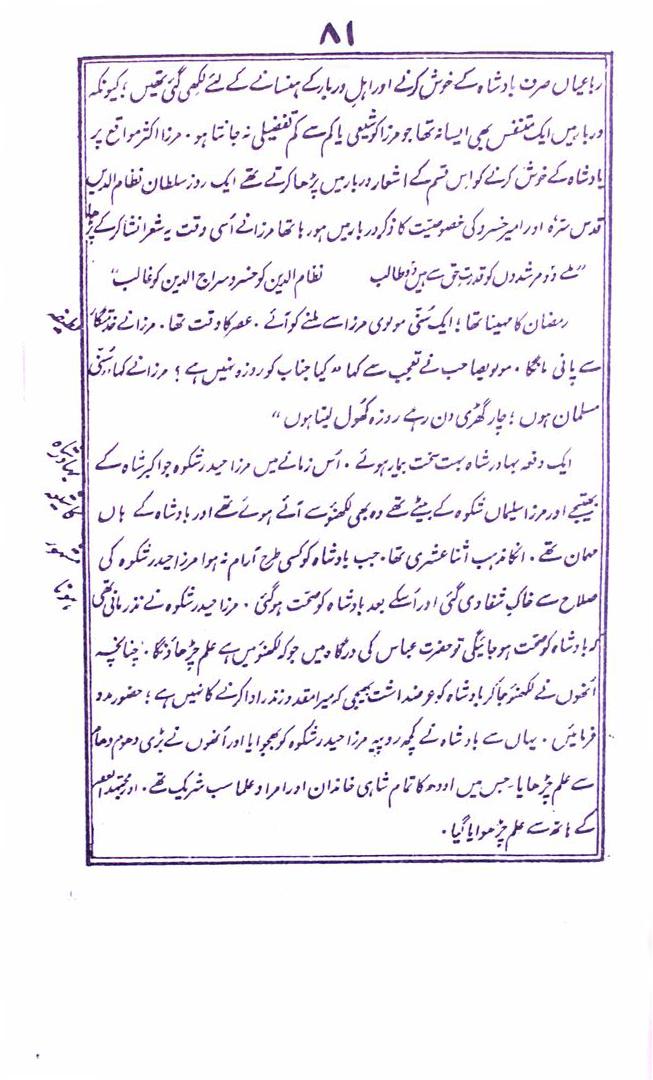 ۸۱
رباعیاں صرف بادشاہ کے خوش کرنے اور اہل دربار کے ہنسانے کے لئے لکھی گئی تھیں؛ کیونکہ
دربار میں ایک متنفس بھی ایسا نہ تھا جو مرزا کو شیعی یا کم سے کم تفضیلی نہ جانتا ہو۔ مرزا اکثر مواقع پر
بادشاہ کے خوش کرنے کو اس قسم کے اشعار دربار میں پڑھا کرتے تھے ایک روز سلطان نظام الدین
قدس سرہ اور امیر خسرو کی خصوصیت کا ذکر دربار میں ہو رہا تھا مرزا نے اسی وقت یہ شعر انشا کر کے پڑھا
”ملے دو مرشدوں کو قدرت حق سے ہیں دو طالب نظام الدین کو خسرو سراج الدین کو غالب“
رمضان کا مہینا تھا؛ ایک سُنّی مولوی مرزا سے ملنے کو آئے۔ عصر کا وقت تھا۔ مرزا نے خدمتگار
سے پانی مانگا۔ مولوی صاحب نے تعجب سے کہا ”کیا جناب کو روزہ نہیں ہے؟ مرزا نے کہا سُنّی
مسلمان ہوں؛ چار گھڑی دن رہے روزہ کھول لیتا ہوں“
ایک دفعہ بہادر شاہ بہت سخت بیمار ہوئے۔ اُس زمانے میں مرزا حیدر شکوہ جو اکبر شاہ کے
بھتیجے اور مرزا سلیماں شکوہ کے بیٹے تھے وہ بھی لکھنؤ سے آئے ہوئے تھے اور بادشاہ کے ہاں
مہمان تھے۔ انکا مذہب اثنا عشری تھا۔ جب بادشاہ کو کسی طرح آرام نہ ہوا مرزا حیدر شکوہ کی
صلاح سے خاکِ شفا دی گئی اور اُسکے بعد بادشاہ کو صحت ہو گئی۔ مرزا حیدر شکوہ نے نذر مانی تھی
کہ بادشاہ کو صحت ہو جائیگی تو حضرت عباس کی درگاہ میں جو کہ لکھنؤ میں ہے علم چڑھاؤنگا۔ چنانچہ
اُنھوں نے لکھنؤ جا کر بادشاہ کو عرضداشت بھیجی کہ میرا مقدور نذر ادا کرنے کا نہیں ہے؛ حضور مدد
فرمائیں۔ یہاں سے بادشاہ نے کچھ روپیہ مرزا حیدر شکوہ کو بھجوایا اور اُنھوں نے بڑی دھوم دھام
سے علم چڑھایا۔ جس میں اودھ کا تمام شاہی خاندان اور امرا و علما سب شریک تھے۔ اور مجتہد العصر
کے ہاتھ سے علم چڑھوایا گیا۔
لطیفہ
بہادر شاہ
کا شیعہ
مشہور
ہونا